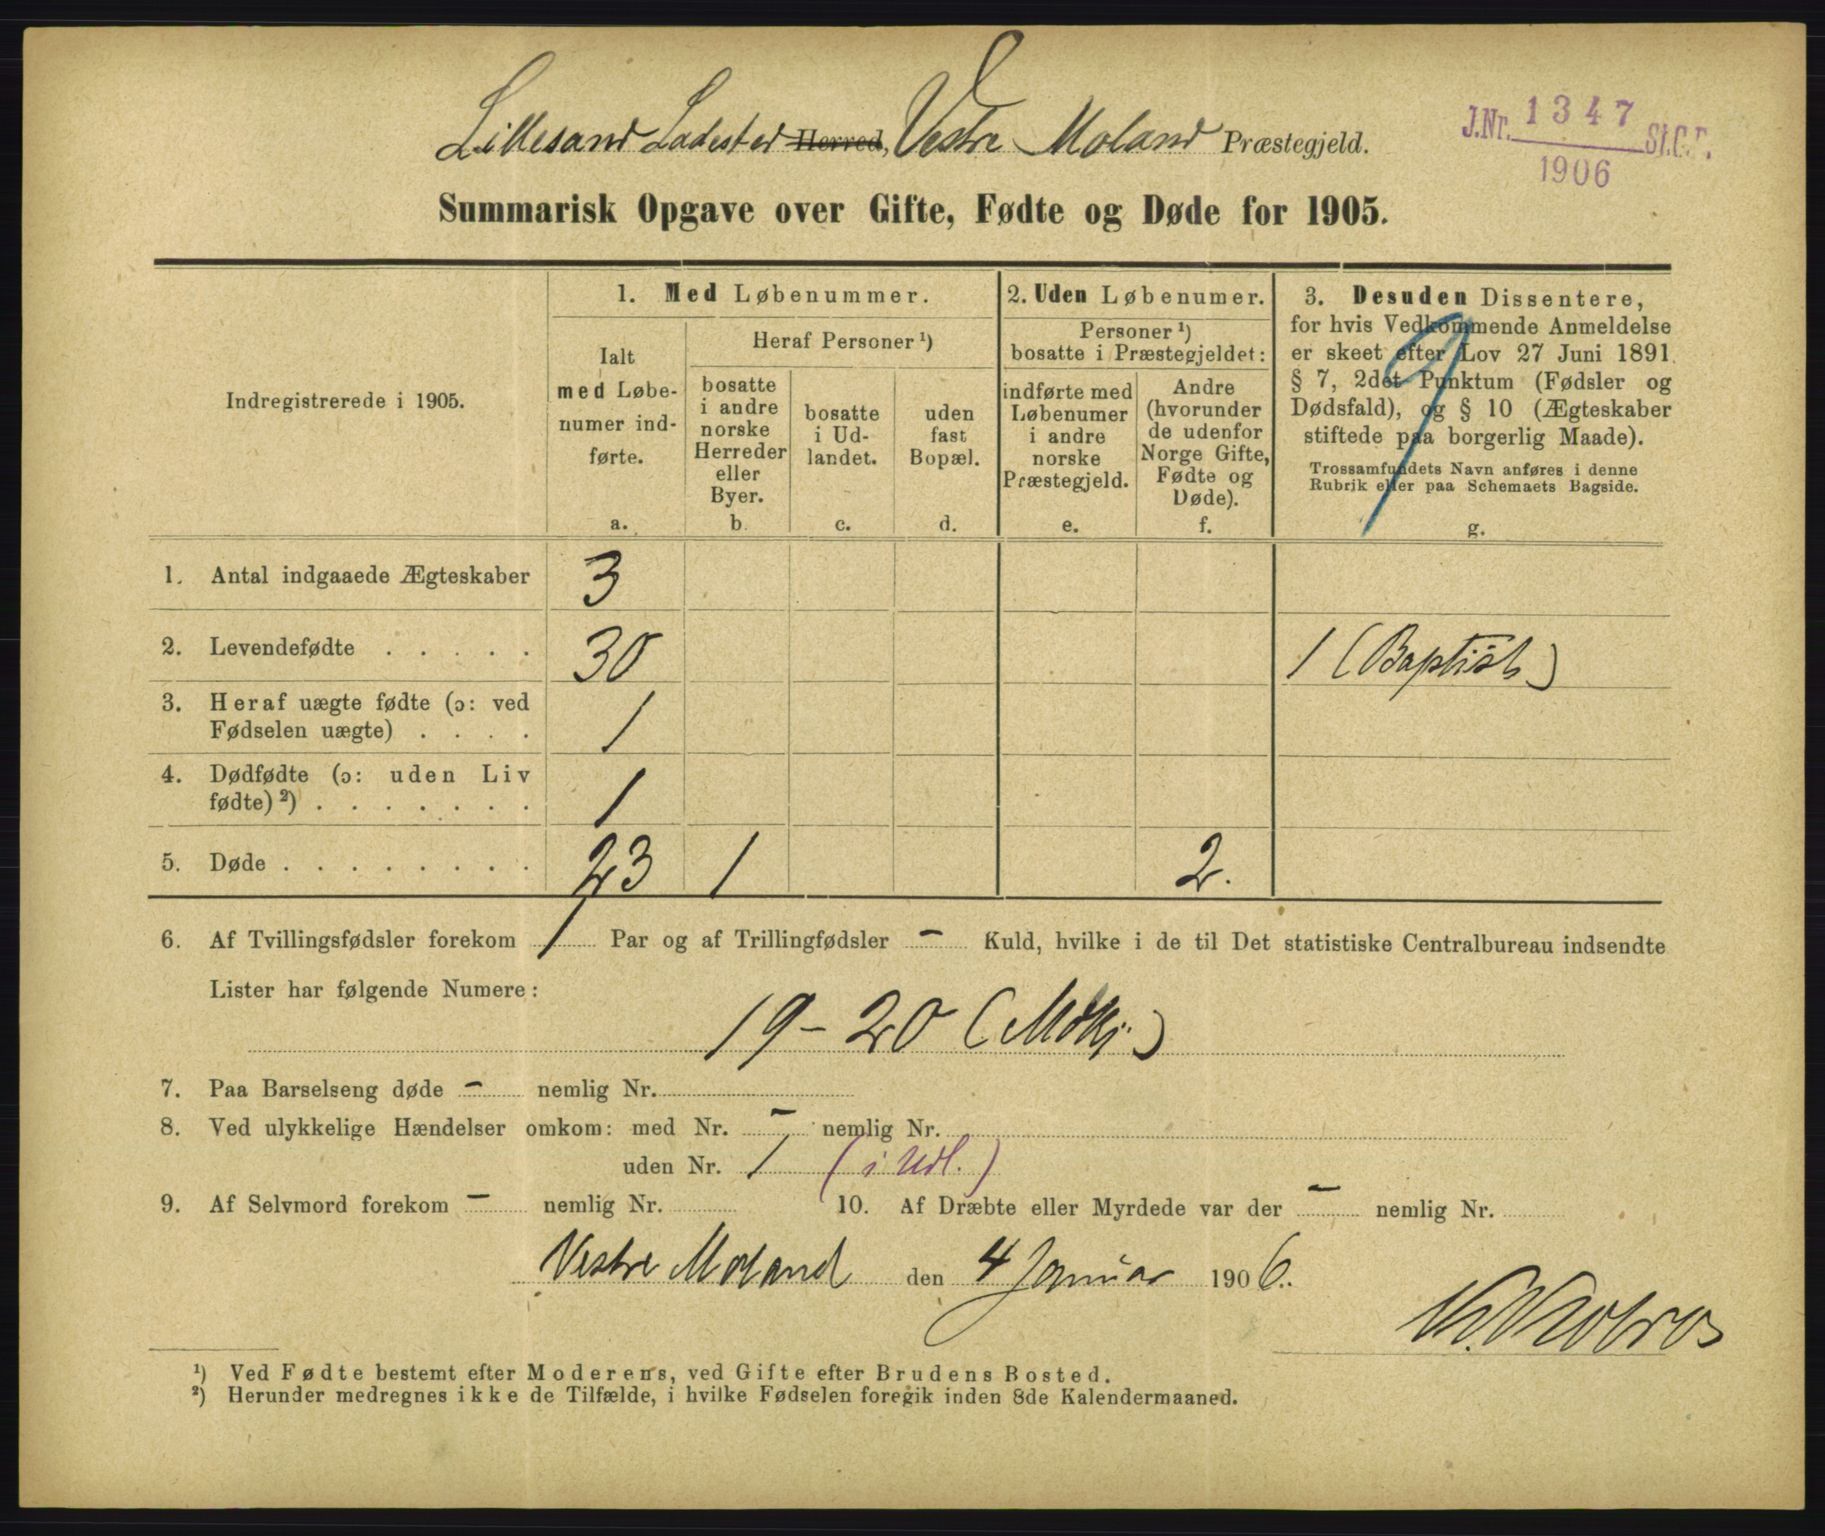 Lillesand Ladested Herred, Vestre Moland Præstegjeld.
J.Nr. 1347 St.C.B.
1906
Summarisk Opgave over Gifte, Fødte og Døde for 1905.
Indregistrerede i 1905.
1. Med Løbenummer.
Ialt
med Løbe-
numer ind-
førte.
a.
Heraf Personer ¹)
bosatte
i andre
norske
Herreder
eller
Byer.
b.
bosatte
i Ud-
landet.
c.
uden
fast
Bopæl.
d.
2. Uden Løbenumer.
Personer ¹)
bosatte i Præstegjeldet:
indførte med
Løbenumer
i andre
norske
Præstegjeld.
e.
Andre
(hvorunder
de udenfor
Norge Gifte,
Fødte og
Døde).
f.
3. Desuden Dissentere,
for hvis Vedkommende Anmeldelse
er skeet efter Lov 27 Juni 1891
§ 7, 2det Punktum (Fødsler og
Dødsfald), og § 10 (Ægteskaber
stiftede paa borgerlig Maade).
Trossamfundets Navn anføres i denne
Rubrik eller paa Schemaets Bagside.
g.
1. Antal indgaaede Ægteskaber 3
2. Levendefødte . . . . . 30 1 (Baptist)
3. Heraf uægte fødte (ɔ: ved
Fødselen uægte) . . . . 1
4. Dødfødte (ɔ: uden Liv
fødte) ²) . . . . . . . 1
5. Døde . . . . . . . . 23 1 2.
6. Af Tvillingsfødsler forekom 1 Par og af Trillingfødsler – Kuld, hvilke i de til Det statistiske Centralbureau indsendte
Lister har følgende Numere:
19 – 20 (Mdkj.)
7. Paa Barselseng døde – nemlig Nr.
8. Ved ulykkelige Hændelser omkom: med Nr. – nemlig Nr.
uden Nr. 1 (i Udl.)
9. Af Selvmord forekom – nemlig Nr. 10. Af Dræbte eller Myrdede var der – nemlig Nr.
Vestre Moland den 4 Januar 1906.
¹) Ved Fødte bestemt efter Moderens, ved Gifte efter Brudens Bosted.
²) Herunder medregnes ikke de Tilfælde, i hvilke Fødselen foregik inden 8de Kalendermaaned.